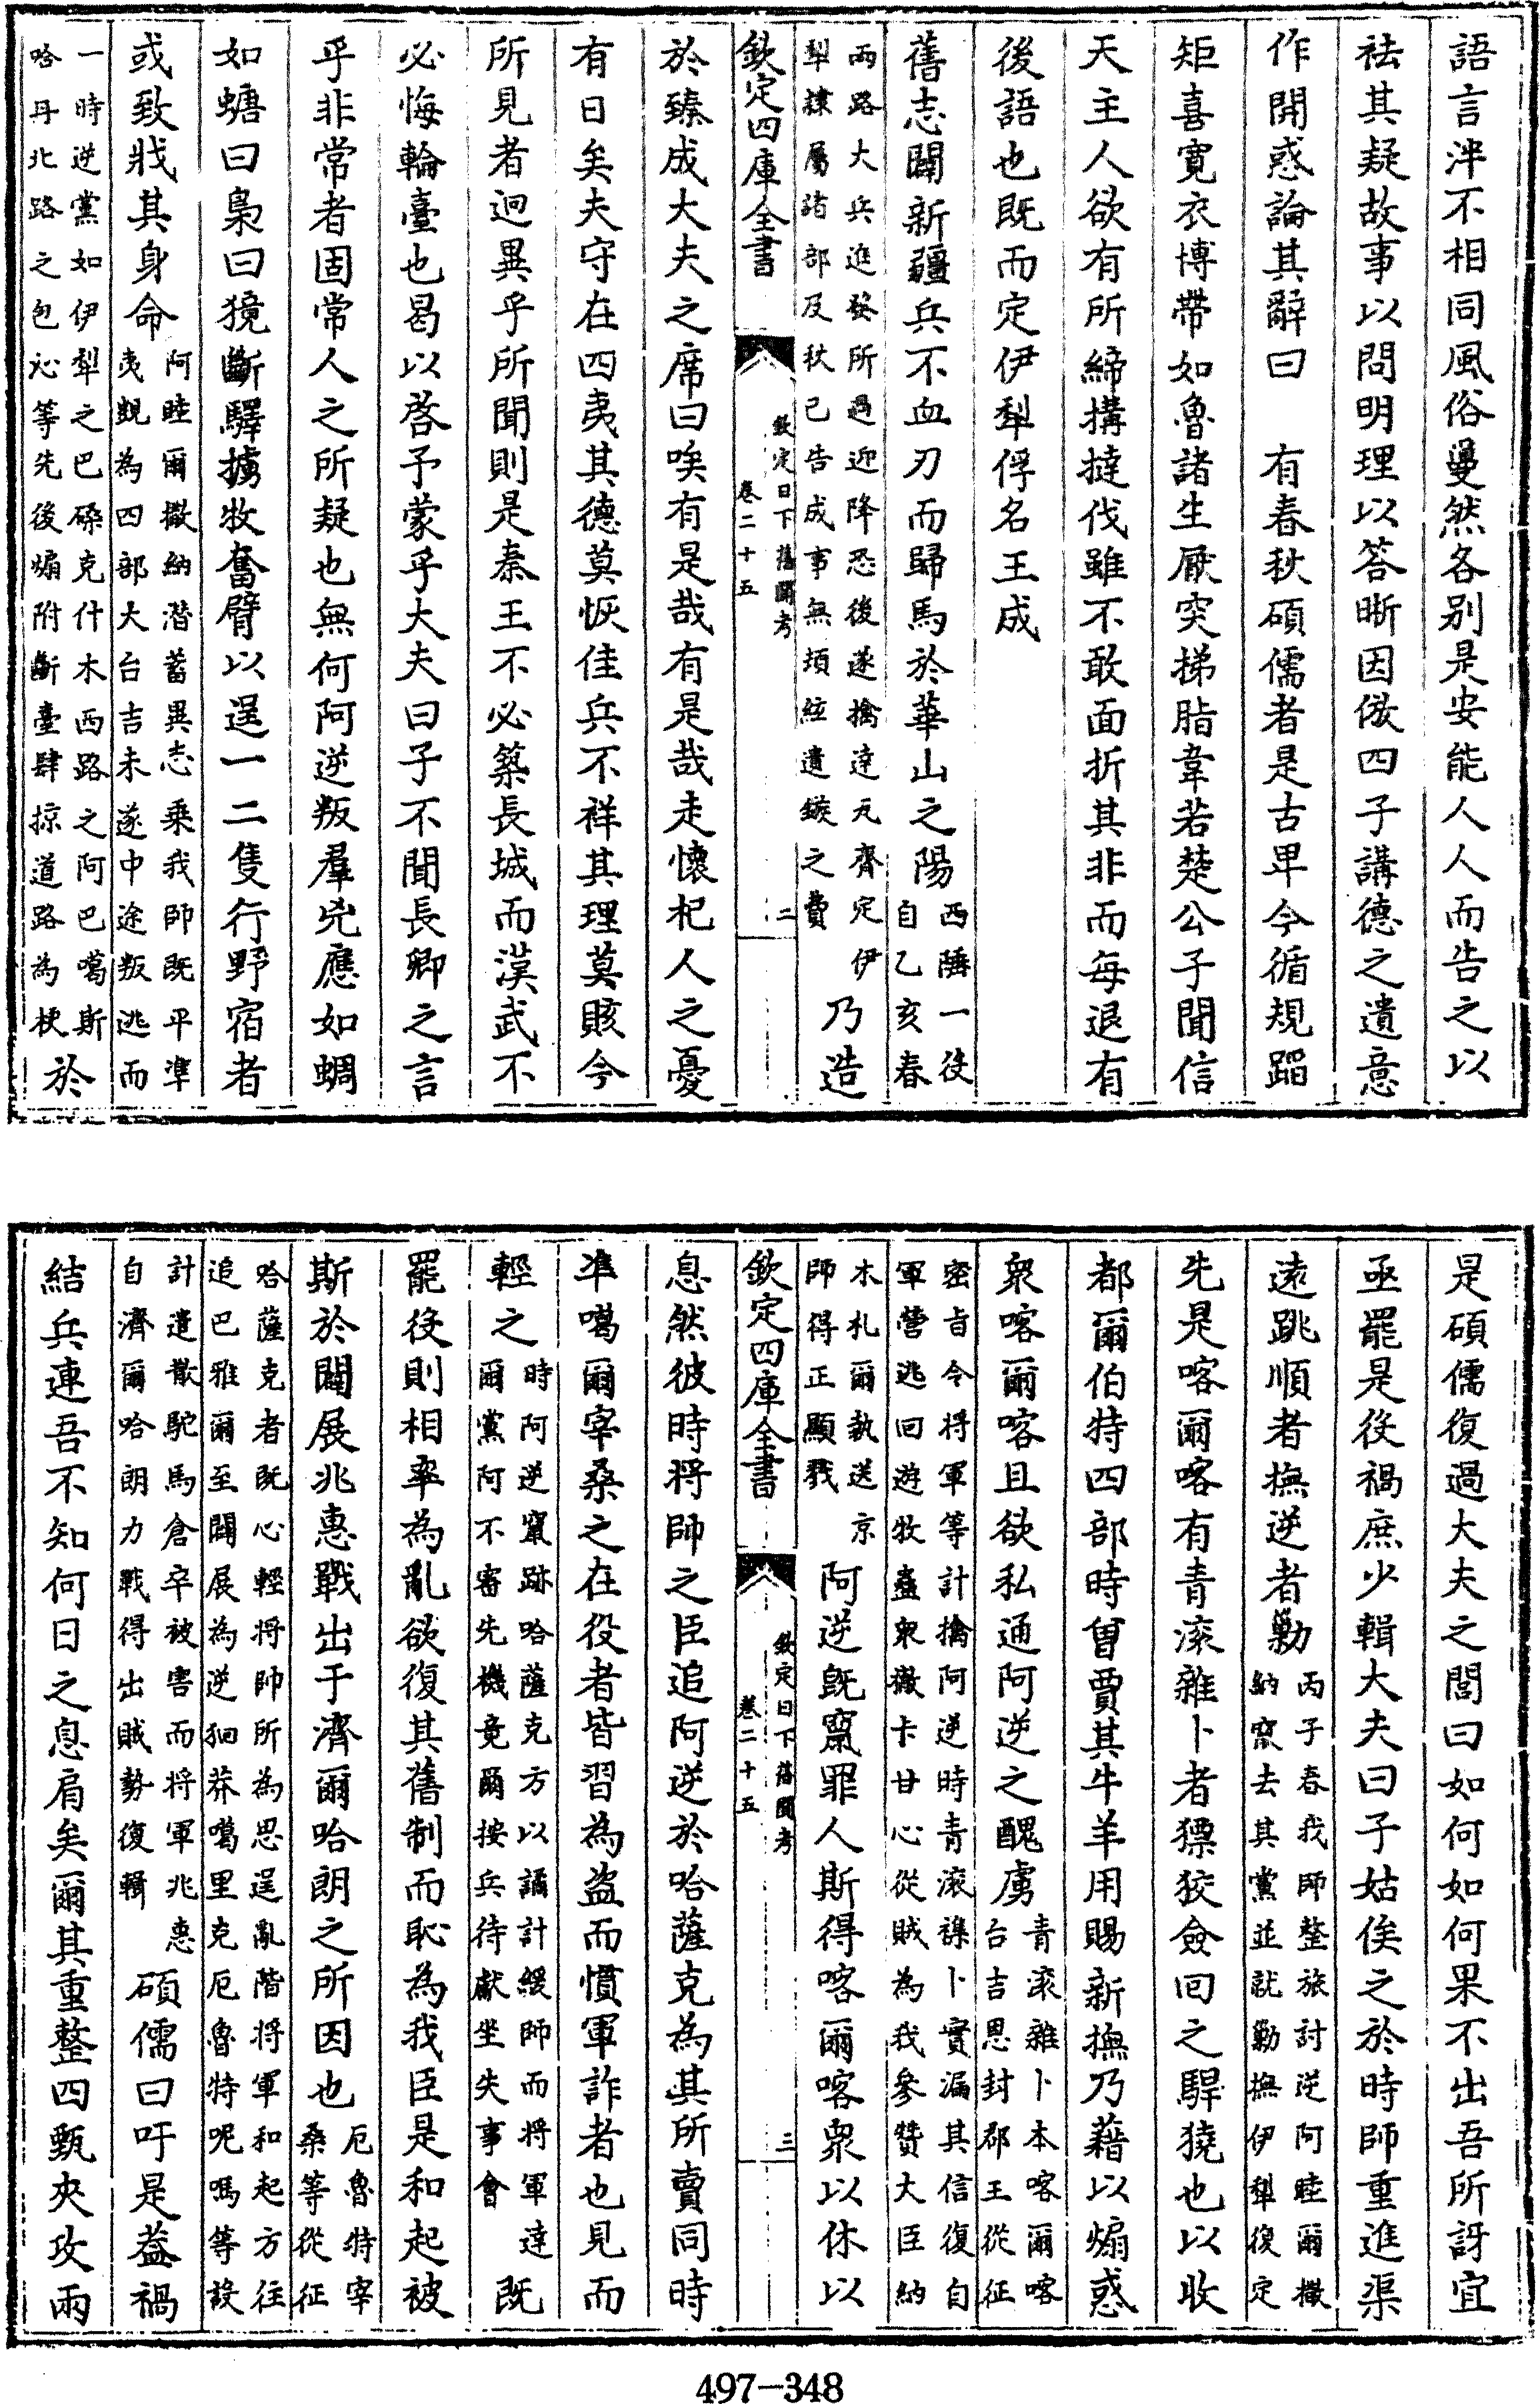 語言泮不相同風俗曼然各别是安能人人而告之以
袪其疑故事以問明理以答晰因倣四子講德之遺意
作開惑論其辭曰　有春秋碩儒者是古卑今循規蹈
矩喜寛衣博帶如魯諸生厭突梯脂韋若楚公子聞信
天主人欲有所締搆撻伐雖不敢面折其非而每退有
後語也既而定伊犁俘名王成
舊志闢新疆兵不血刃而歸馬於華山之陽西陲一役自乙亥春
兩路大兵進發所過迎降恐後遂擒達瓦齊定伊犁隸屬諸部及秋已告成事無頃絓遺鏃之費乃造
欽定四庫全書　欽定日下舊聞考　卷二十五　二
於臻成大夫之席曰唉有是哉有是哉走懷杞人之憂
有日矣夫守在四夷其德莫恢佳兵不祥其理莫賅今
所見者迥異乎所聞則是秦王不必築長城而漢武不
必悔輪臺也曷以啓予蒙乎大夫曰子不聞長卿之言
乎非常者固常人之所疑也無何阿逆叛羣兇應如蜩
如螗曰梟曰獍斷驛擄牧奮臂以逞一二隻行野宿者
或致戕其身命阿睦爾撒納潛蓄異志乘我師既平準夷覬為四部大台吉未遂中途叛逃而
一時逆黨如伊犁之巴礫克什木西路之阿巴噶斯哈丹北路之包沁等先後煽附斷臺肆掠道路為梗於
是碩儒復過大夫之閭曰如何如何果不出吾所訝宜
亟罷是役禍庶少輯大夫曰子姑俟之於時師重進渠
遠跳順者撫逆者勦丙子春我師整旅討逆阿睦爾撒納竄去其黨並就勦撫伊犁復定
先是喀爾喀有青滚雜卜者獷狡僉回之騨獟也以收
都爾伯特四部時曾賈其牛羊用賜新撫乃藉以煽惑
衆喀爾喀且欲私通阿逆之醜虜青滚雜卜本喀爾喀台吉恩封郡王從征
密旨令將軍等計擒阿逆時青滚襍卜實漏其信復自軍營逃回遊牧盡衆徹卡甘心從賊為我參贊大臣納
木札爾執送京師得正顯戮阿逆旣竄罪人斯得喀爾喀衆以休以
欽定四庫全書　欽定日下舊聞考　卷二十五　三
息然彼時將帥之臣追阿逆於哈薩克為其所賣同時
準噶爾宰桑之在役者皆習為盗而慣軍詐者也見而
輕之時阿逆竄跡哈薩克方以譎計緩師而將軍達爾黨阿不審先機竟爾按兵待獻坐失事會既
罷役則相率為亂欲復其舊制而恥為我臣是和起被
斯於闢展兆惠戰出于濟爾哈朗之所因也厄魯特宰桑等從征
哈薩克者既心輕將帥所為思逞亂階將軍和起方往追巴雅爾至闢展為逆狪莽噶里克厄魯特呢嗎等設
計遣散駝馬倉卒被害而將軍兆惠自濟爾哈朗力戰得出賊勢復輯碩儒曰吁是益禍
結兵連吾不知何日之息肩矣爾其重整四甄夾攻兩
497-348